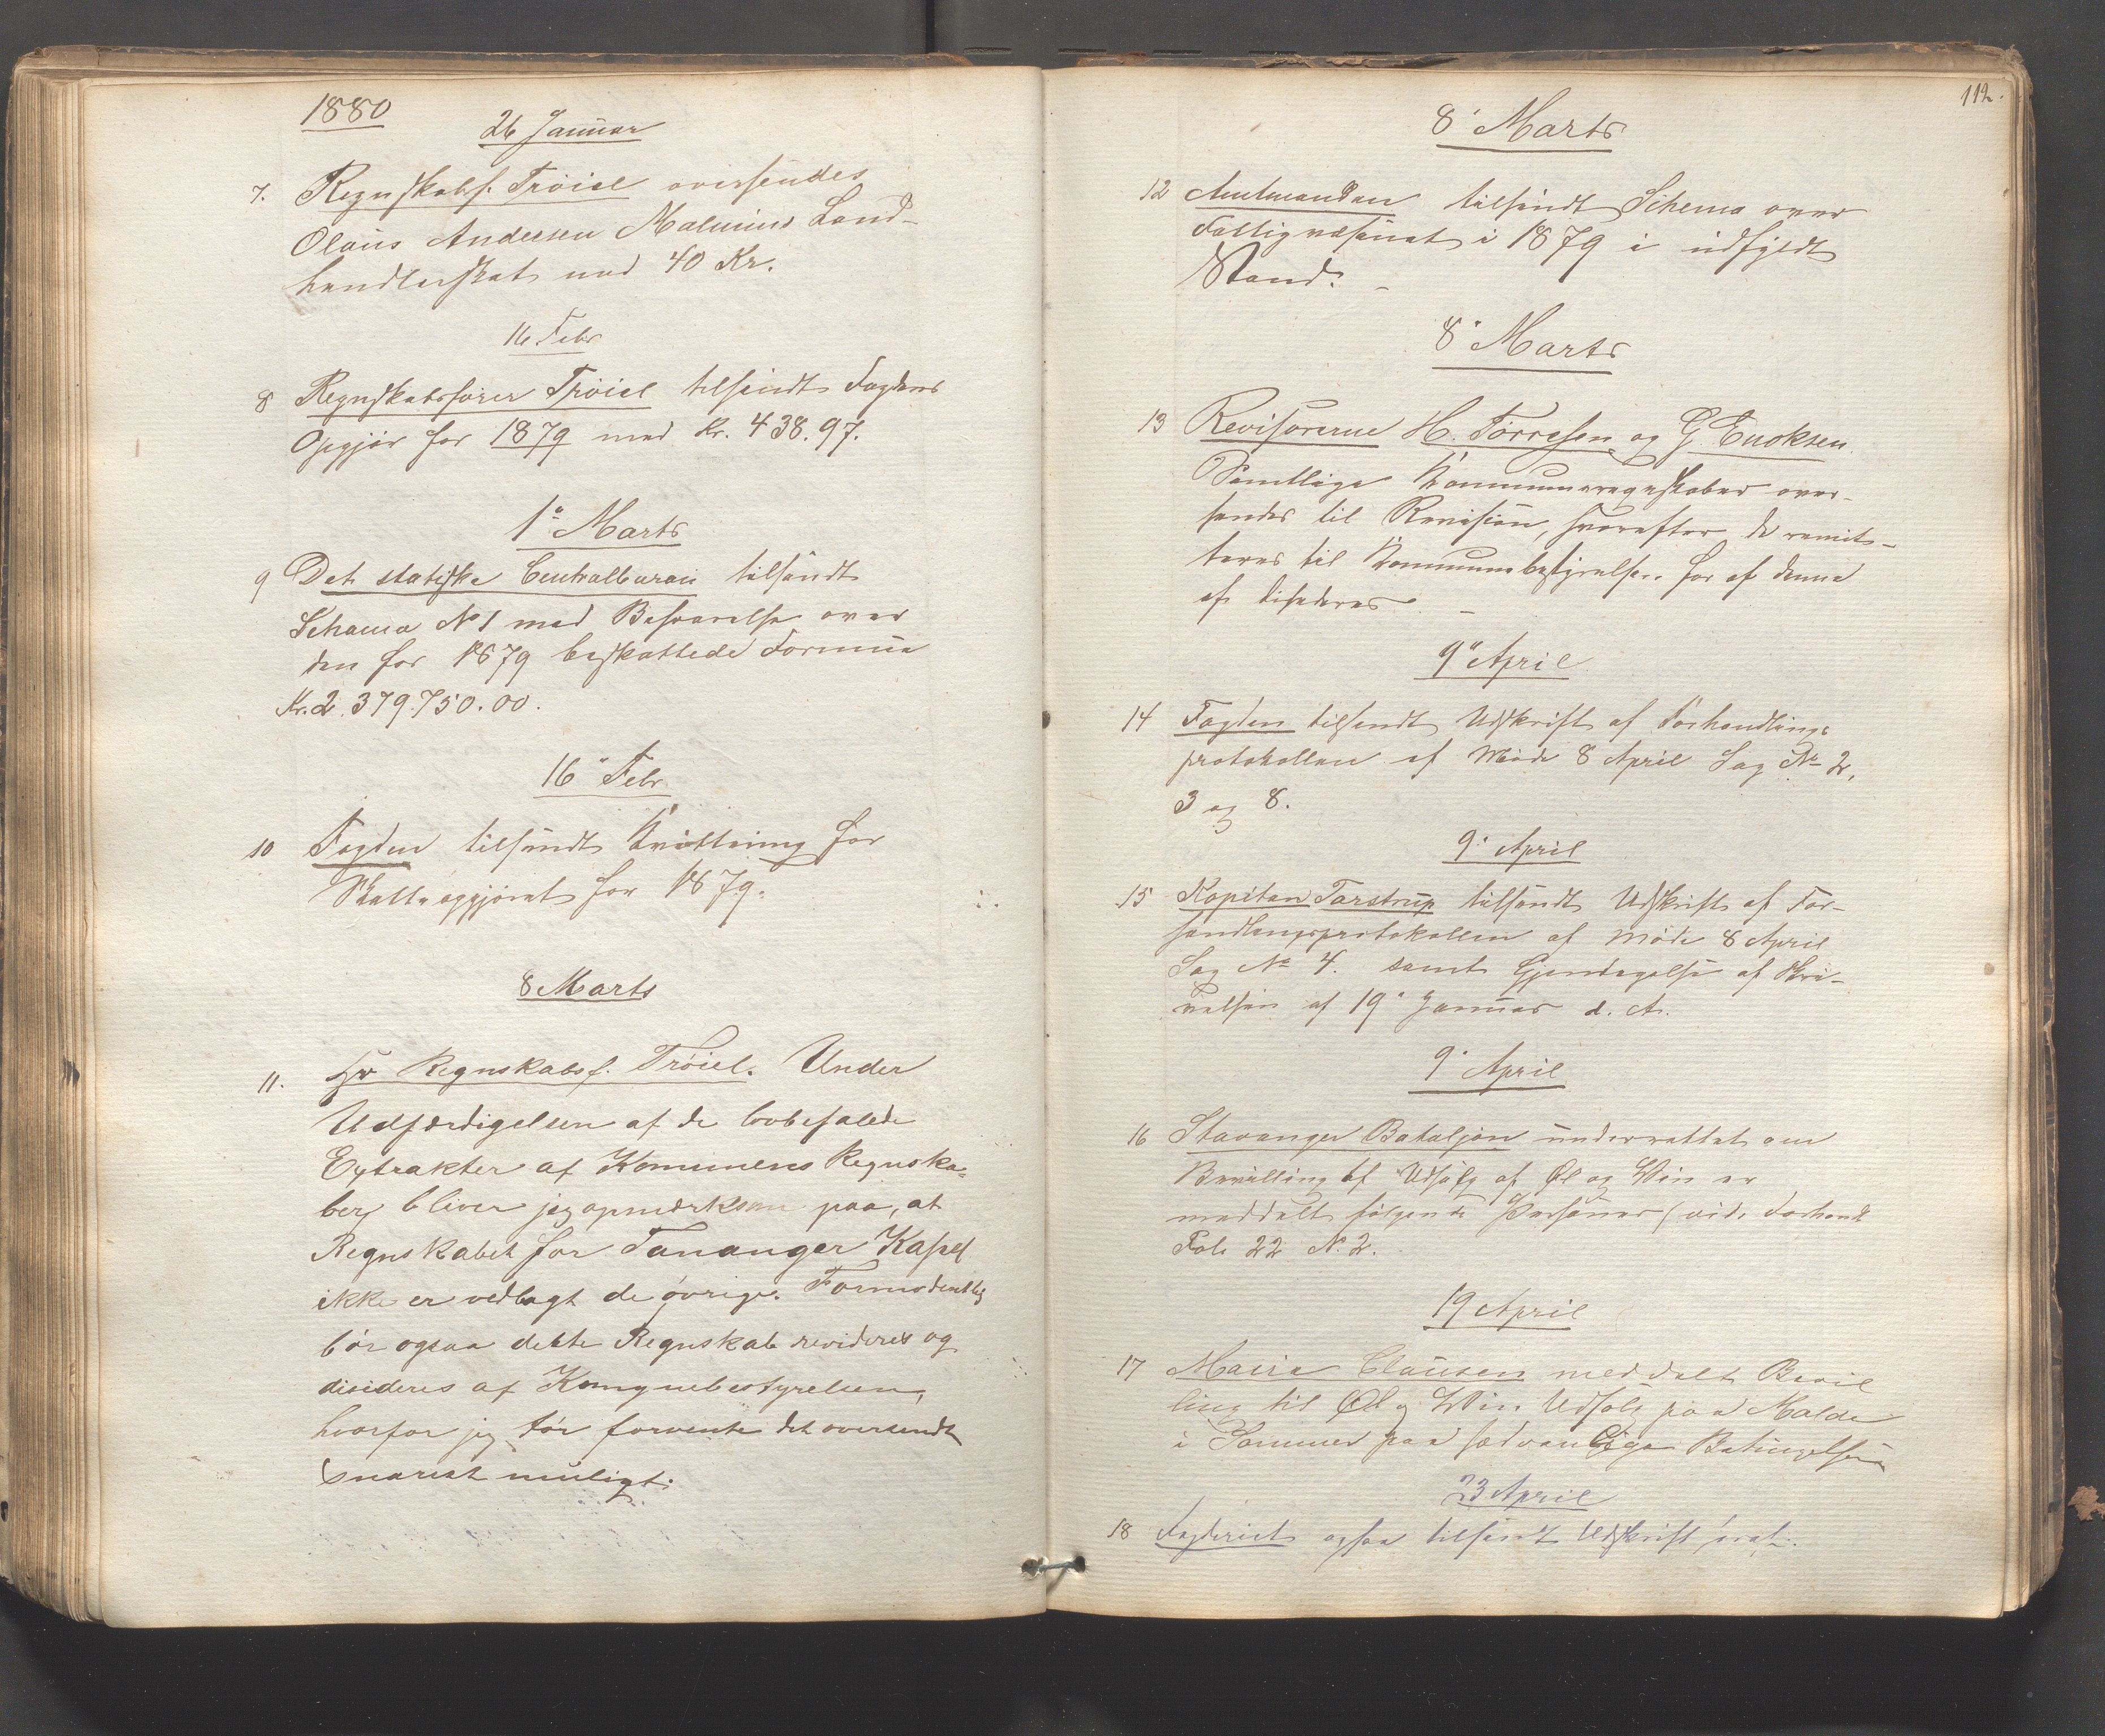 1880
26 Januar
7. Regnskabsf. Trøiel oversendes
Olaus Andersen Malmins Land-
handlerskat med 40 Kr.
16 Febr
8 Regnskabsfører Trøiel tilsendt Fogdens
Opgjør for 1879 med Kr. 438.97.
1ª Marts
9 Det statiske Centralbureau tilsendt
Schema Nº 1 med Besvarelse over
den for 1879 beskattede Formue
Kr. 2.379.750.00.
16ª Febr
10 Fogden tilsendt Kvittering for
Skatteopgjøret for 1879.
8 Marts
11. Hr Regnskabsf. Trøiel. Under
Udfærdigelsen af de lovbefalede
Extrakter af Komunens Regnska-
ber, bliver jeg opmærksom paa, at
Regnskabet for Tananger Kapel
ikke er vedlagt de øvrige. Formodentlig
bør ogsaa dette Regnskab revideres og
disideres af Komunebestyrelsen,
hvorfor jeg tør forvente det oversendt
snarest muligt.
112.
8' Marts
12 Amtmanden tilsendt Schema over
Fattigvæsenet i 1879 i udfyldt
Stand. -
8' Marts
13 Revisorerne H. Tørresen og G. Enoksen.
Samtlige Kommuneregnskaber over-
sendes til Revision, hvorefter de remit-
teres til Kommunebestyrelsen for af denne
at disideres. -
9' April
14 Fogden tilsendt Udskrift af Forhandlings
protokollen af Møde 8 April Sag Nº 2,
3 og 8.
9' April
15 Kapitan Tarstrup tilsendt Udskrift af For-
handlingsprotokollen af Møde 8 April
Sag Nº 4. samt Gjentagelse af Skri-
velsen af 19' Januar d. A.
9' April
16 Stavanger Bataljon underrettet om
Bevilling til Udsalg af Øl og Vin er
meddelt følgende Personer (vide Forhandl
Fol. 22 N. 2.
19 April
17 Maria Clausen meddelt Bevil
ling til Øl og Vin Udsalg paa Malde
i Sommer paa sædvanlige Betingelser
23 April
18 Fogderiet ogsaa tilsendt Udskrift